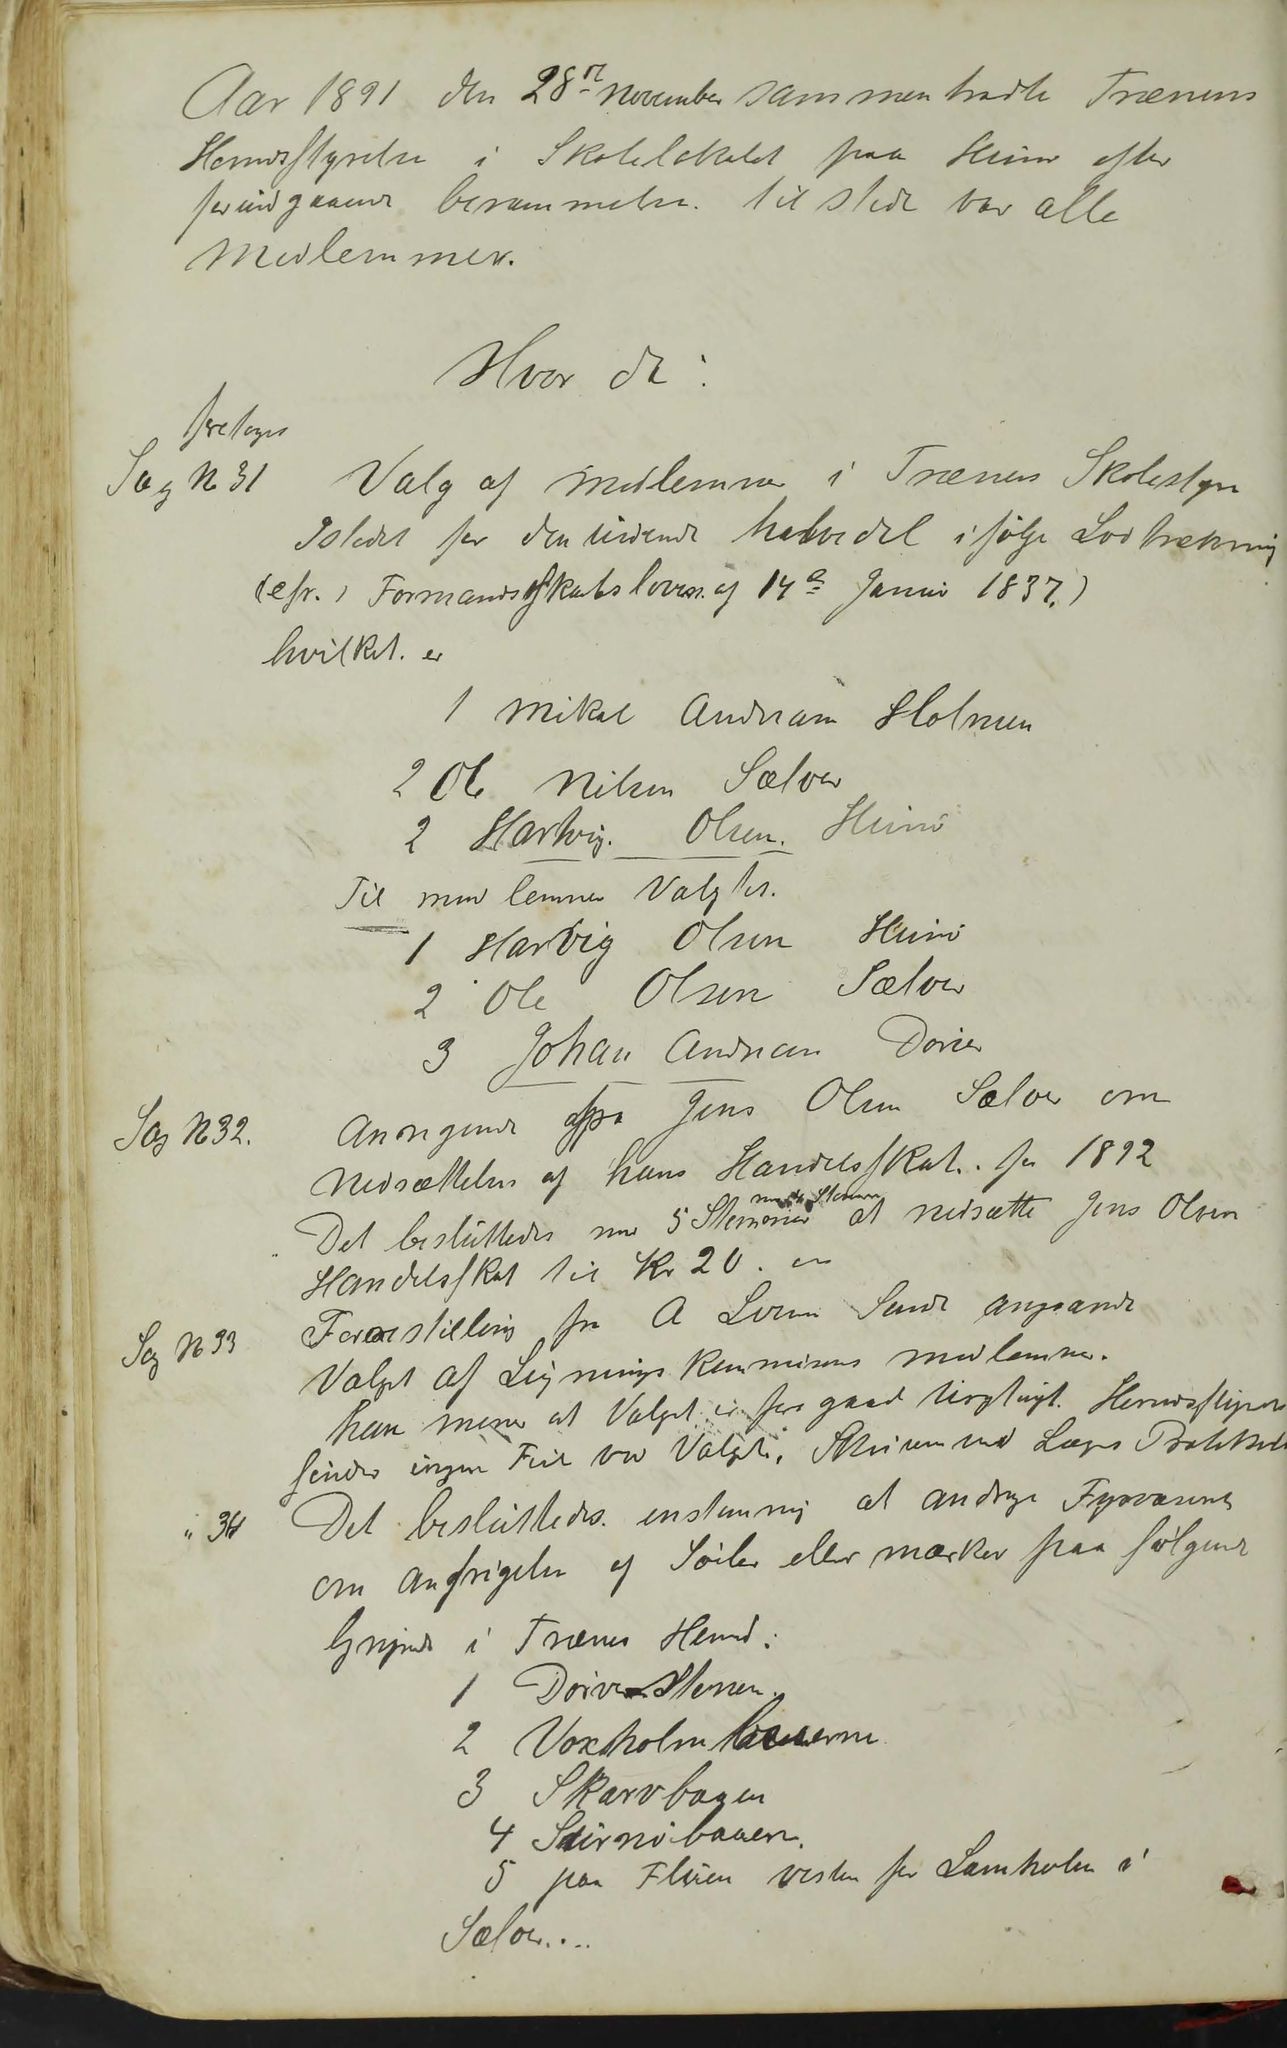 Aar 1891 den 28de November sammentraadte Trænens
Herredsstyrelse i Skolelokalet paa Husø efter
forudgaaende berammelse. til stede var alle
Medlemmer.
Hvor da:
foretoges
Sag No 31 Valg af medlemmer i Trænens Skolestyre
Istedet for den udtrædende halvedel ifølge Lodtrækning
(cfr. Formandsskabsloven af 14de Januar 1837.)
hvilket. er
1 Mikal Andreasen Holmen
2 Ole Nilsen Sælvær
2 Hartvig. Olsen. Husø
Til medlemmer Valgtes.
1 Hartvig Olsen Husø
2 Ole Olsen Sælvær
3 Johan Andreasen Dørvær
Sag No 32. Andragende fra Jens Olsen Sælvær om
Nedsættelse af hans Handelsskat. for 1892
Det besluttedes med 5 Stemmer mod Stemmer at nedsætte Jens Olsen
Handelsskat til Kr 20.
Sag No 33 Forestilling fra A Sande angaaende
Valget af Ligningskommisions medlemmer.
han mener at Valget er foregaaet urigtigt. Herredsstyrelsen
finder ingen Feil ved Valget. Protokol
" 34 Det besluttedes. enstemmig at andrage Fyrvæsenet
om anbringelse af Søiler eller mærker paa følgende
i Trænen Herred:
1 Dørvær Stenen.
2 Voxholmbaaerne
3 Skarvbaaen
4 Suirnøbaaen.
5 paa Fluen vesten for Lamholmen i
Sælvær....